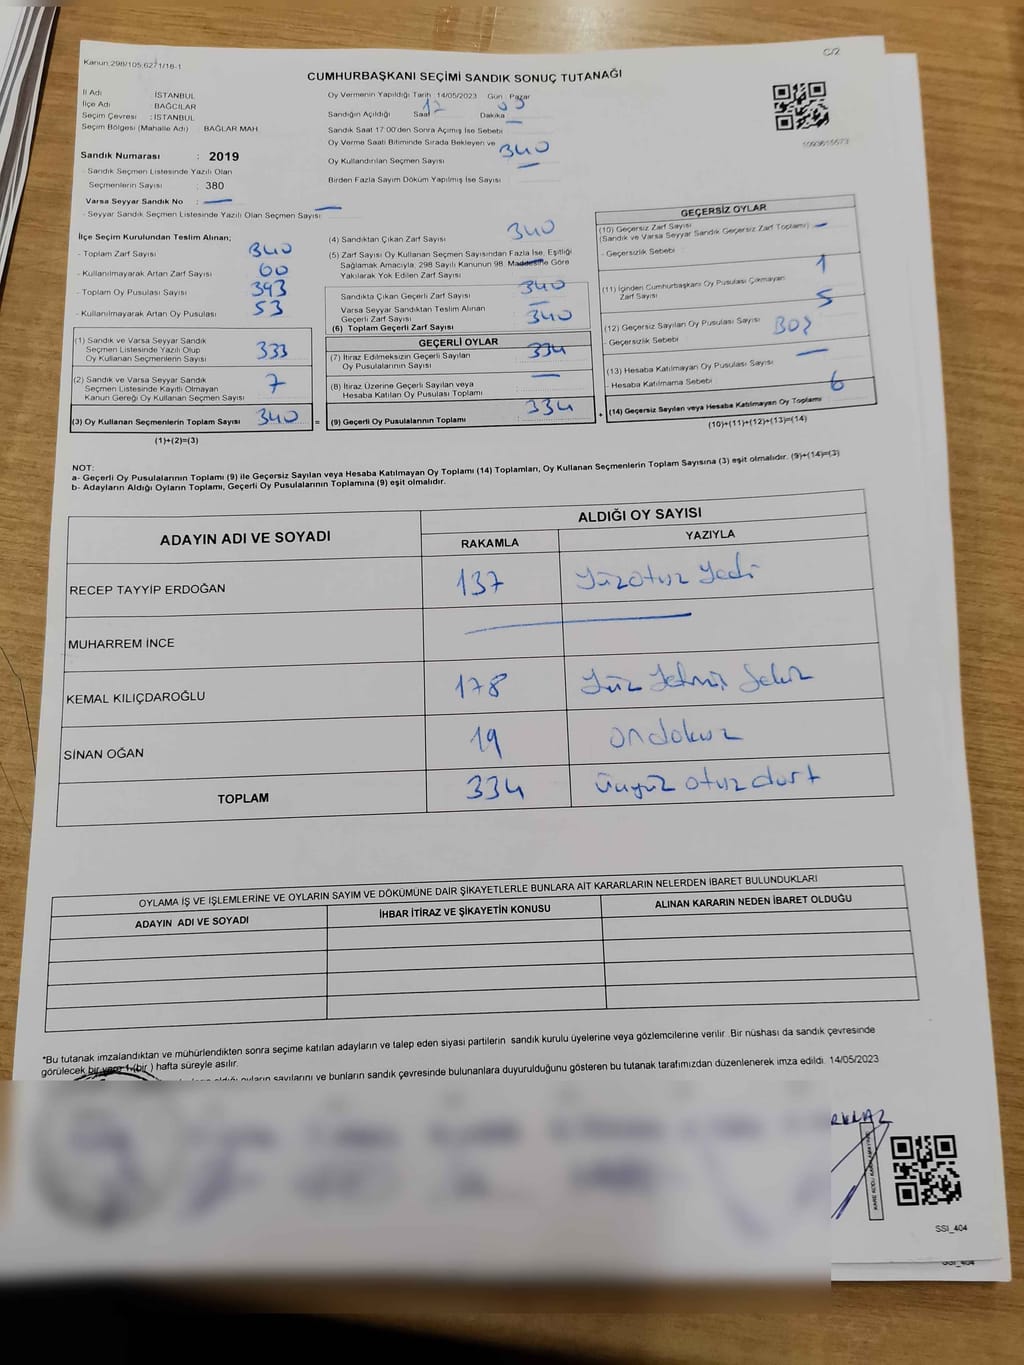 C/2
Kanun:298/105,6271/18-1
CUMHURBAŞKANI SEÇİMİ SANDIK SONUÇ TUTANAĞI
İl Adı : İSTANBUL
İlçe Adı : BAĞCILAR
Seçim Çevresi : İSTANBUL
Seçim Bölgesi (Mahalle Adı) BAĞLAR MAH.
Sandık Numarası : 2019
Sandık Seçmen Listesinde Yazılı Olan
Seçmenlerin Sayısı : 380
Varsa Seyyar Sandık No : —
- Seyyar Sandık Seçmen Listesinde Yazılı Olan Seçmen Sayısı: —
Oy Vermenin Yapıldığı Tarih : 14/05/2023 Gün : Pazar
Sandığın Açıldığı Saat 17 Dakika 05
Sandık Saat 17:00'den Sonra Açılmış İse Sebebi —
Oy Verme Saati Bitiminde Sırada Bekleyen ve
Oy Kullandırılan Seçmen Sayısı 340
Birden Fazla Sayım Döküm Yapılmış İse Sayısı —
1093615573
İlçe Seçim Kurulundan Teslim Alınan;
- Toplam Zarf Sayısı 340
- Kullanılmayarak Artan Zarf Sayısı 60
- Toplam Oy Pusulası Sayısı 393
- Kullanılmayarak Artan Oy Pusulası 53
(1) Sandık ve Varsa Seyyar Sandık
Seçmen Listesinde Yazılı Olup
Oy Kullanan Seçmenlerin Sayısı 333
(2) Sandık ve Varsa Seyyar Sandık
Seçmen Listesinde Kayıtlı Olmayan
Kanun Gereği Oy Kullanan Seçmen Sayısı 7
(3) Oy Kullanan Seçmenlerin Toplam Sayısı 340 =
(1)+(2)=(3)
(4) Sandıktan Çıkan Zarf Sayısı 340
(5) Zarf Sayısı Oy Kullanan Seçmen Sayısından Fazla İse, Eşitliği
Sağlamak Amacıyla, 298 Sayılı Kanunun 98. Maddesine Göre
Yakılarak Yok Edilen Zarf Sayısı —
Sandıkta Çıkan Geçerli Zarf Sayısı 340
Varsa Seyyar Sandıktan Teslim Alınan
Geçerli Zarf Sayısı —
(6) Toplam Geçerli Zarf Sayısı 340
GEÇERLİ OYLAR
(7) İtiraz Edilmeksizin Geçerli Sayılan
Oy Pusulasının Sayısı 334
(8) İtiraz Üzerine Geçerli Sayılan veya
Hesaba Katılan Oy Pusulası Toplamı —
(9) Geçerli Oy Pusulalarının Toplamı 334 +
GEÇERSİZ OYLAR
(10) Geçersiz Zarf Sayısı
(Sandık ve Varsa Seyyar Sandık Geçersiz Zarf Toplamı) —
- Geçersizlik Sebebi :
(11) İçinden Cumhurbaşkanı Oy Pusulası Çıkmayan
Zarf Sayısı 1
(12) Geçersiz Sayılan Oy Pusulası Sayısı 5
- Geçersizlik Sebebi
(13) Hesaba Katılmayan Oy Pusulası Sayısı —
- Hesaba Katılmama Sebebi
(14) Geçersiz Sayılan veya Hesaba Katılmayan Oy Toplamı 6
(10)+(11)+(12)+(13)=(14)
NOT:
a- Geçerli Oy Pusulalarının Toplamı (9) ile Geçersiz Sayılan veya Hesaba Katılmayan Oy Toplamı (14) Toplamları, Oy Kullanan Seçmenlerin Toplam Sayısına (3) eşit olmalıdır. (9)+(14)=(3)
b- Adayların Aldığı Oyların Toplamı, Geçerli Oy Pusulalarının Toplamına (9) eşit olmalıdır.
ADAYIN ADI VE SOYADI ALDIĞI OY SAYISI
RAKAMLA YAZIYLA
RECEP TAYYİP ERDOĞAN 137 Yüzotuz Yedi
MUHARREM İNCE —
KEMAL KILIÇDAROĞLU 178 Yüz Yetmiş Sekiz
SİNAN OĞAN 19 Ondokuz
TOPLAM 334 Üçyüz otuz dört
OYLAMA İŞ VE İŞLEMLERİNE VE OYLARIN SAYIM VE DÖKÜMÜNE DAİR ŞİKAYETLERLE BUNLARA AİT KARARLARIN NELERDEN İBARET BULUNDUKLARI
ADAYIN ADI VE SOYADI İHBAR İTİRAZ VE ŞİKAYETİN KONUSU ALINAN KARARIN NEDEN İBARET OLDUĞU
*Bu tutanak imzalandıktan ve mühürlendikten sonra seçime katılan adayların ve talep eden siyasi partilerin sandık kurulu üyelerine veya gözlemcilerine verilir. Bir nüshası da sandık çevresinde
görülecek bir yere 1 (bir) hafta süreyle asılır.
oyların sayılarını ve bunların sandık çevresinde bulunanlara duyurulduğunu gösteren bu tutanak tarafımızdan düzenlenerek imza edildi. 14/05/2023
SSI_404
SSI_404